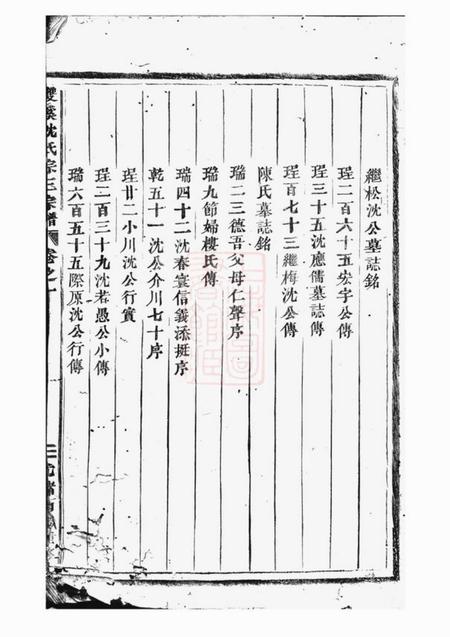 繼松沈公墓誌銘
珵二百六十五宏宇公傳
珵三十五沈應儒墓誌傳
珵百七十三繼梅沈公傳
陳氏墓誌銘
瑞二三德吾父母仁聲序
瑞九節婦樓氏傳
瑞四十二沈春寰信義添挺序
乾五十一沈公介川七十序
珵廿二小川沈公行實
珵二百三十九沈若愚公小傳
瑞六百五十五際原沈公行傳
雙溪沈氏宗正宗譜 卷之一